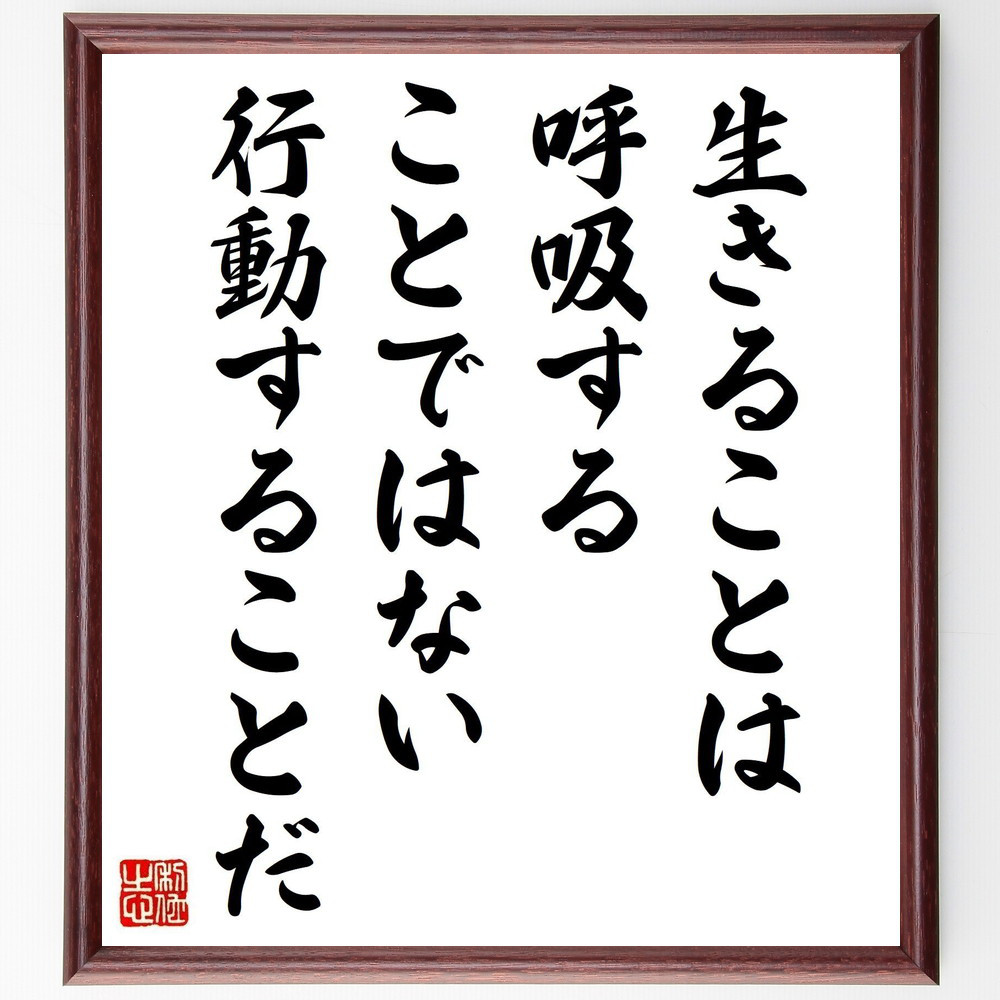 生きることは
呼吸する
ことではない
行動することだ